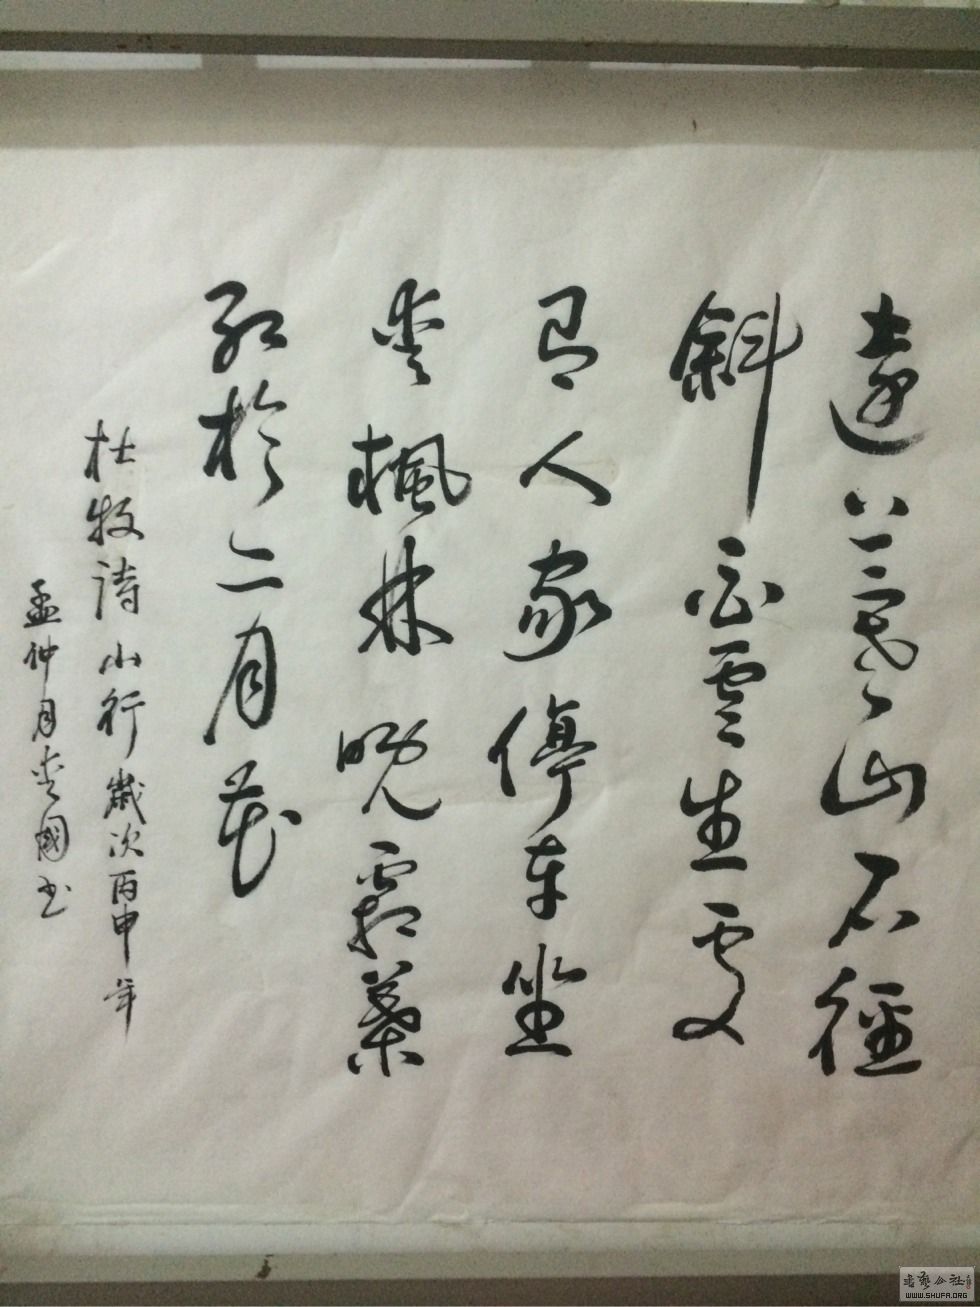 遠上寒山石徑
斜白雲生處
有人家停車坐
愛楓林晚霜葉
紅於二月花
杜牧詩山行歲次丙申年
孟仲月愛國书
書藝公社
WWW.SHUFA.ORG